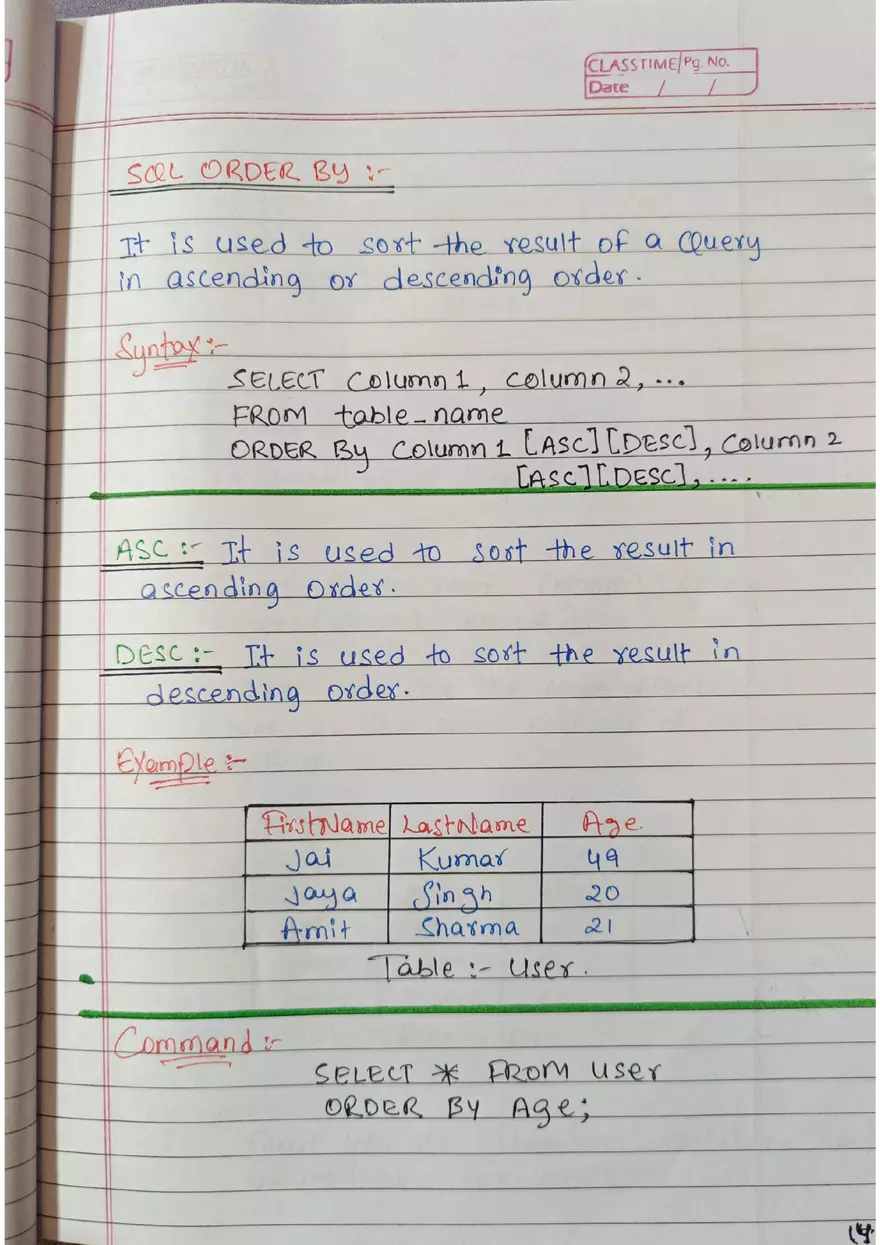 CLASSTIME/Pg. No.
Date / /
SQL ORDER BY :-
It is used to sort the result of a Query
in ascending or descending order.
Syntax :-
SELECT Column1, Column2, ...
FROM table_name
ORDER By Column1 [ASC][DESC], Column 2
[ASC][DESC], ....
ASC :- It is used to sort the result in
ascending order.
DESC :- It is used to sort the result in
descending order.
Example :-
FirstName LastName Age.
Jai Kumar 49
Jaya Singh 20
Amit Sharma 21
Table :- User.
Command :-
SELECT * FROM user
ORDER BY Age;
14